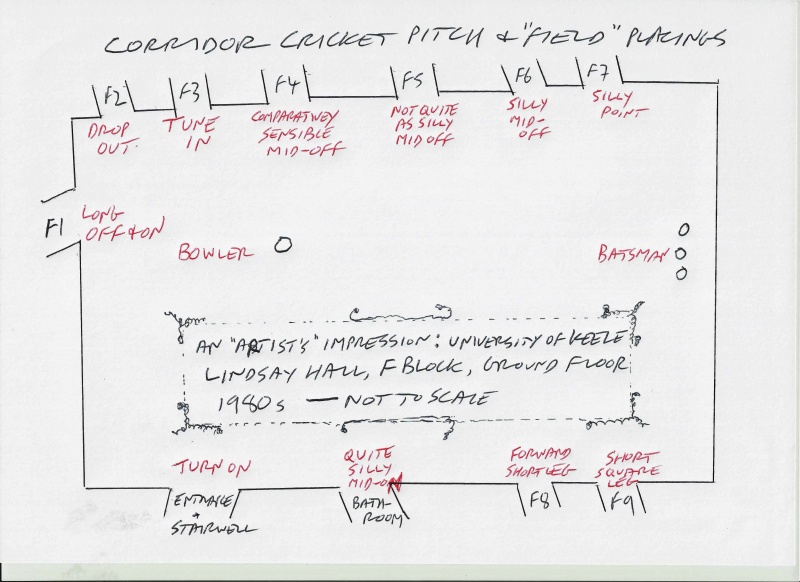 CORRIDOR CRICKET PITCH & "FIELD" PLACINGS
F2
F3
F4
F5
F6
F7
DROP
OUT.
TUNE
IN
COMPARATIVEY
SENSIBLE
MID-OFF
NOT QUITE
AS SILLY
MID OFF
SILLY
MID-
OFF
SILLY
POINT
F1
LONG
OFF & ON
BOWLER
BATSMAN
AN "ARTIST'S" IMPRESSION: UNIVERSITY OF KEELE
LINDSAY HALL, F BLOCK, GROUND FLOOR
1980s — NOT TO SCALE
TURN ON
QUITE
SILLY
MID-ON
FORWARD
SHORT LEG
SHORT
SQUARE
LEG
ENTRANCE
&
STAIRWELL
BATH-
ROOM
F8
F9